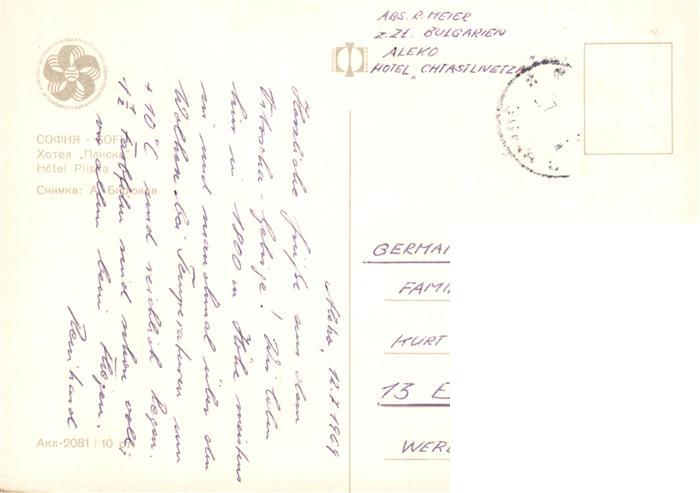 ABS. R. MEIER
z. Zt. BULGARIEN
ALEKO
HOTEL „CHTASTLIVETZA“
СОФИЯ - SOFIA
Хотел „Плиска“
Hôtel Pliska
Снимка: А.
Aleko, 12.X.1969
Herzliche Grüße aus dem
Witoscha-Gebirge! Wir
hier in 1800 m Höhe meistens
und manchmal über den
Wolken bei Temperaturen um
+10°C und reichlich Regen.
und schon voll;
vor allem beim
Reinhard
GERMA
FAMI
KURT
13 E
WER
Акл-2081/10 бл